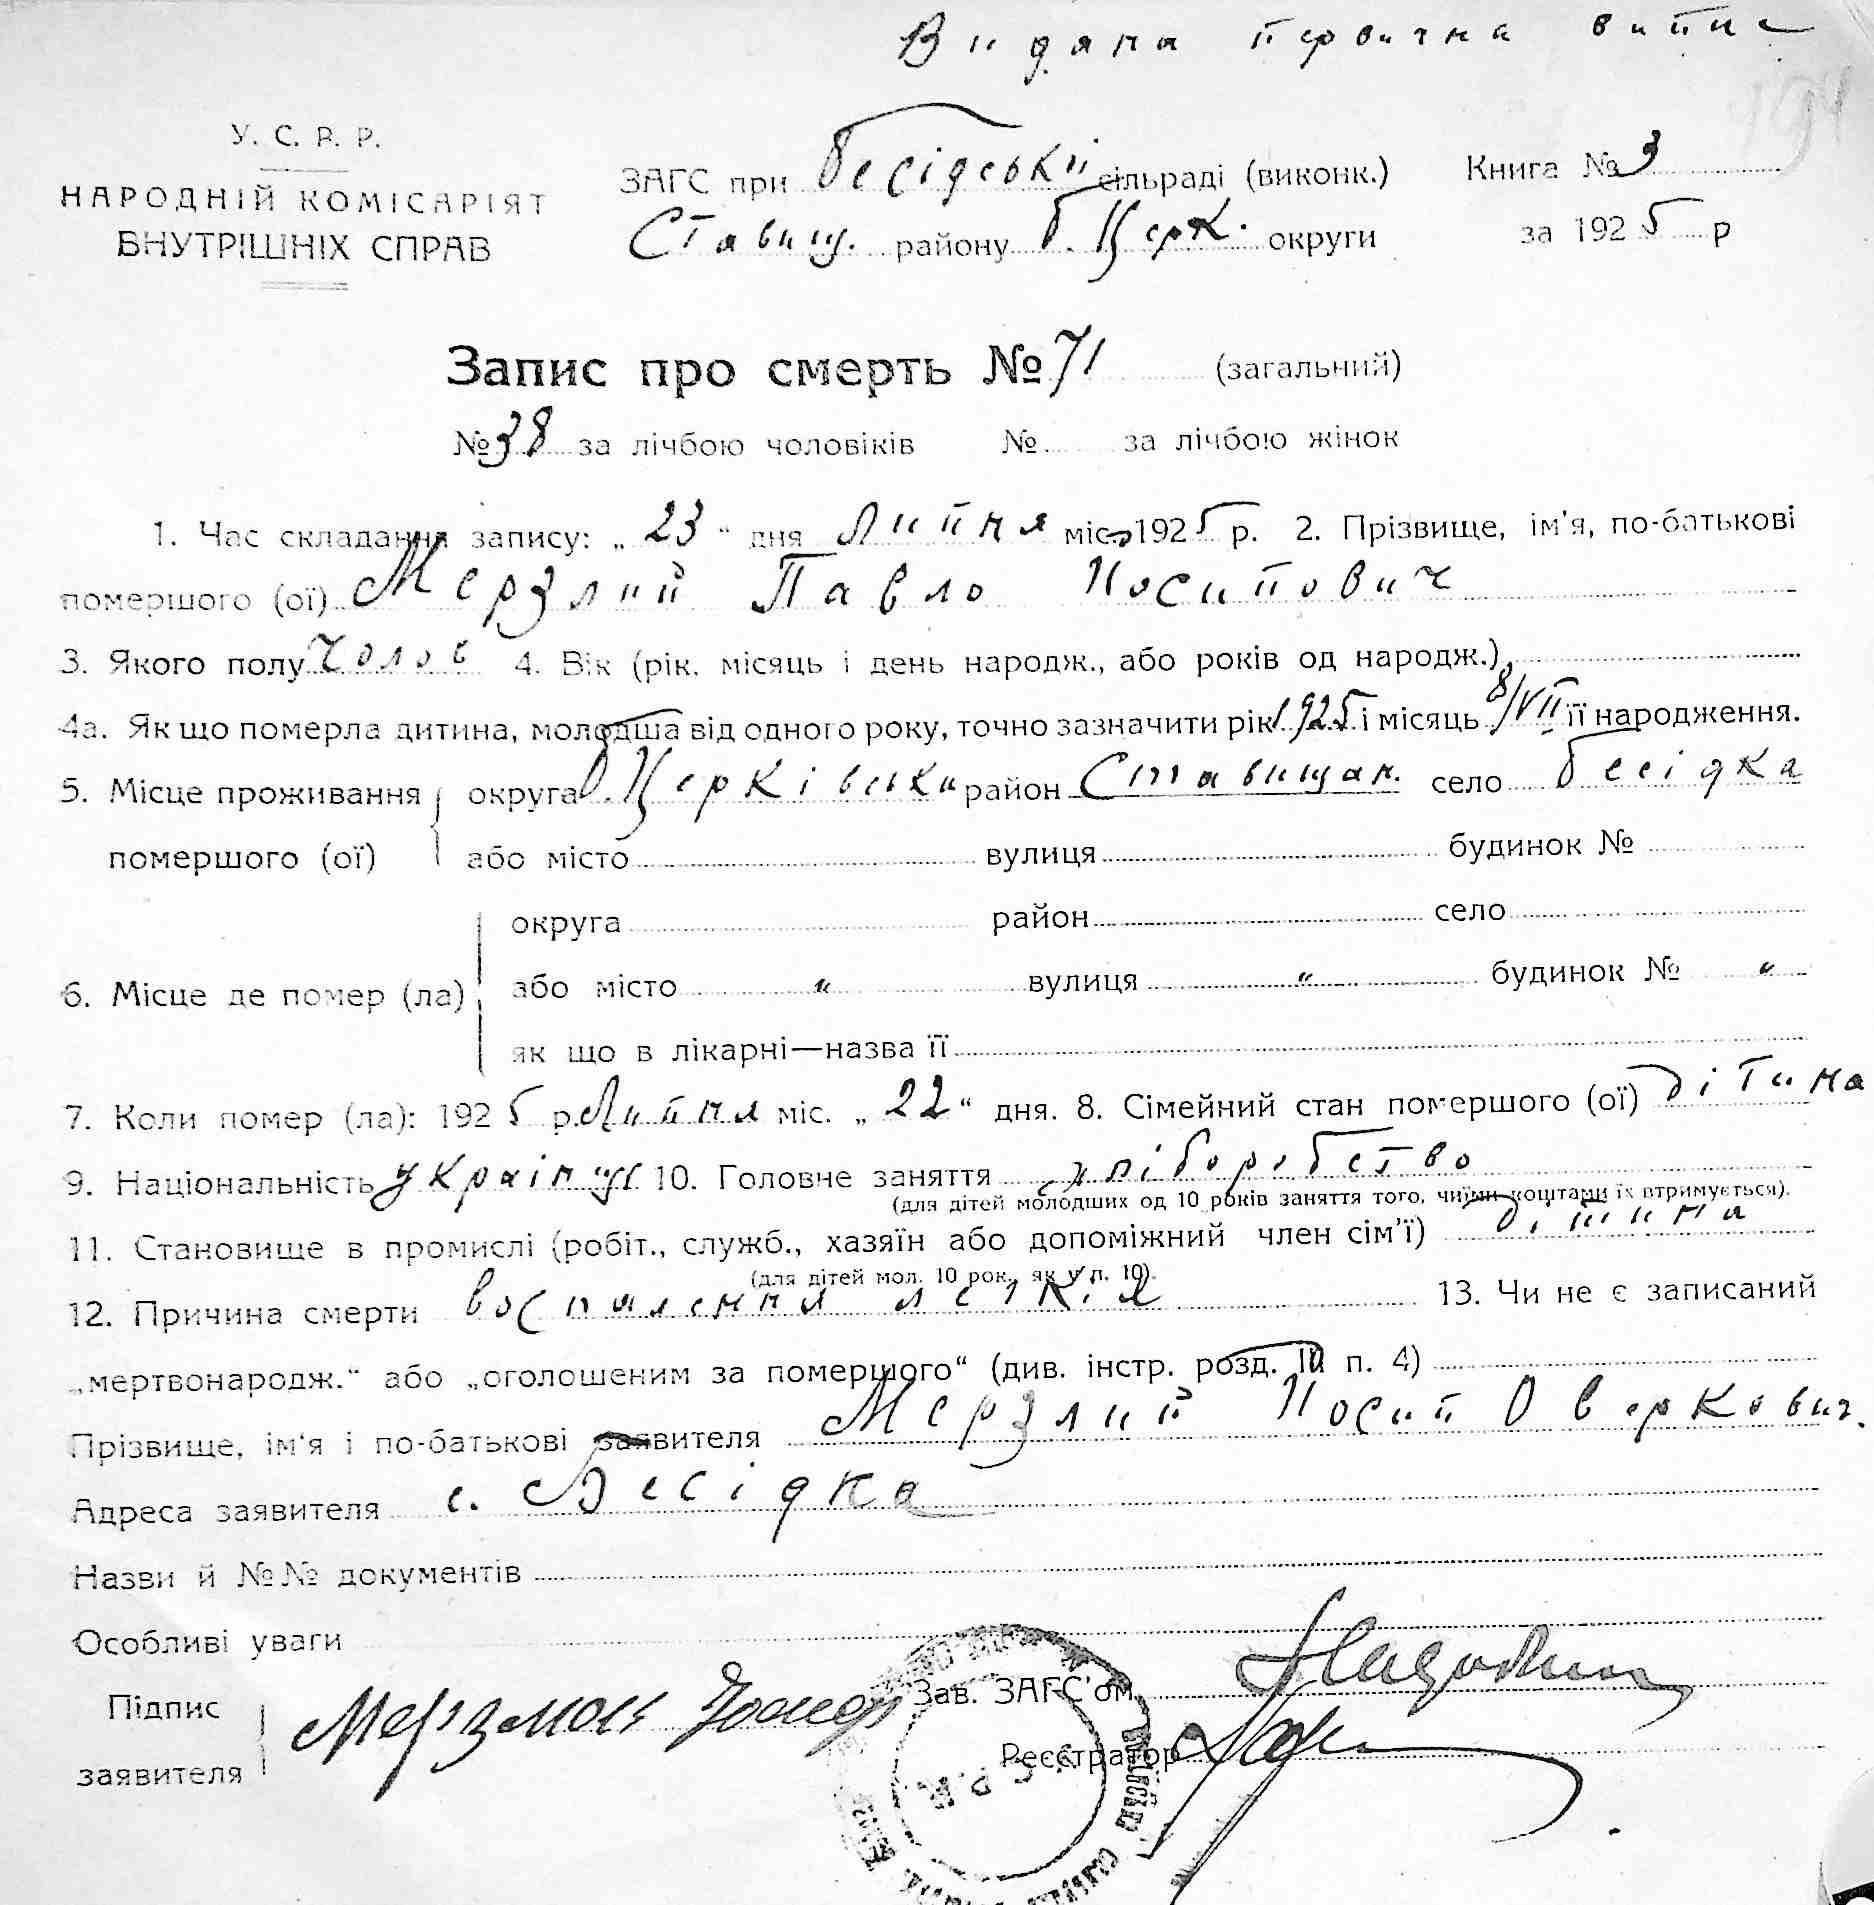 Видана первична випис
194
У. С. Р. Р.
НАРОДНІЙ КОМІСАРІЯТ
ВНУТРІШНІХ СПРАВ
ЗАГС при Бесідській сільраді (виконк.)
Ставищ. району Б. Церк. округи
Книга № 3
за 1925 р
Запис про смерть № 71 (загальний)
№ 38 за лічбою чоловіків № за лічбою жінок
1. Час складання запису: „23“ дня Липня міс. 1925 р. 2. Прізвище, ім'я, по-батькові
помершого (ої) Мерзлий Павло Йосипович
3. Якого полу Чолов 4. Вік (рік, місяць і день народж., або років од народж.)
4а. Як що померла дитина, молодша від одного року, точно зазначити рік 1925 і місяць 8/VII її народження.
5. Місце проживання помершого (ої) округа Б. Церківська район Ставищан. село Бесідка
або місто вулиця будинок №
6. Місце де помер (ла) округа район село
або місто " вулиця " будинок № "
як що в лікарні—назва її
7. Коли помер (ла): 1925 р. Липня міс. „22“ дня. 8. Сімейний стан помершого (ої) дітина
9. Національність україн 10. Головне заняття хліборобство
(для дітей молодших од 10 років заняття того, чиїми коштами їх втримується).
11. Становище в промислі (робіт., служб., хазяїн або допоміжний член сім'ї) дітина
(для дітей мол. 10 рок., як у п. 10).
12. Причина смерти воспаления легкія 13. Чи не є записаний
„мертвонародж.“ або „оголошеним за померщого“ (див. інстр. розд. III п. 4)
Прізвище, ім'я і по-батькові заявителя Мерзлий Йосип Оверкович.
Адреса заявителя с. Бесідка
Назви й №№ документів
Особливі уваги
Підпис заявителя
Зав. ЗАГС'ом
Реєстратор